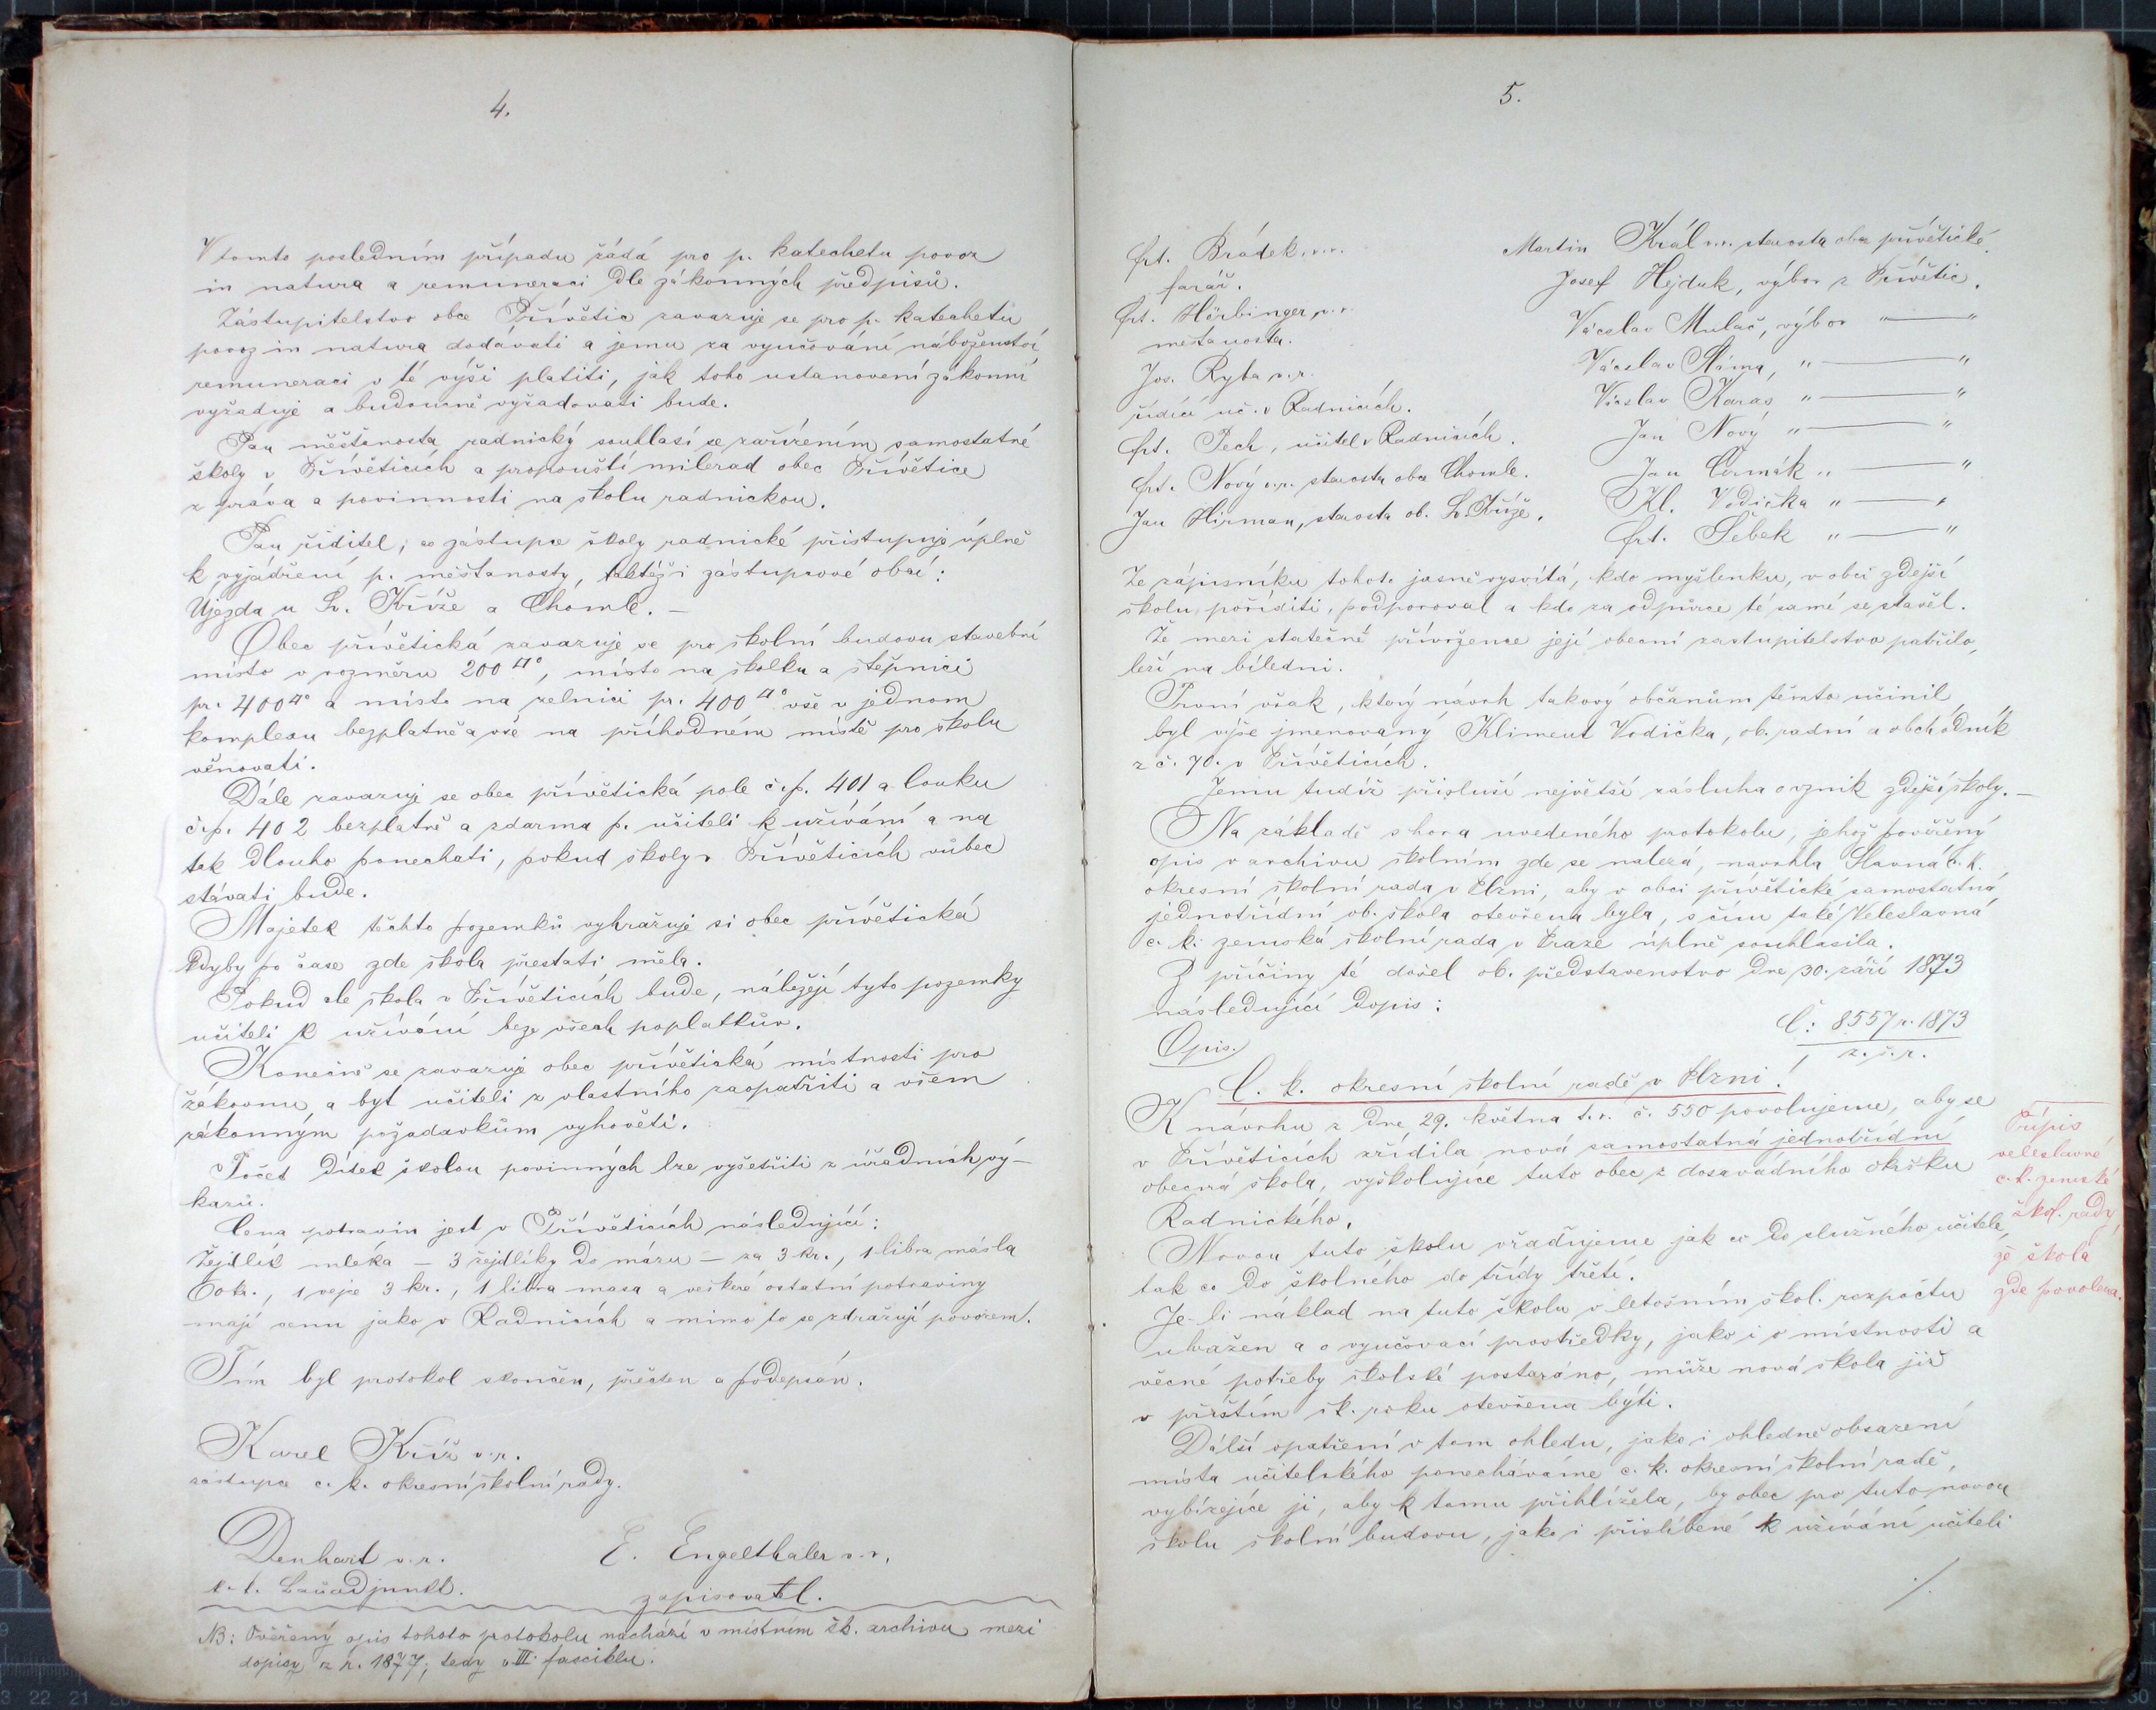 4.
V tomto posledním případu žádá pro p. katechetu povoz
in natura a remuneraci dle zákonných předpisů.
Zástupitelstvo obce Přívětic zavazuje se pro p. katechetu
povoz in natura dodávati a jemu za vyučování náboženství
remuneraci v té výši platiti, jak toho ustanovení zákonní
vyžaduje a budoucně vyžadovati bude.
Pan měšťanosta radnický souhlasí se zařízením samostatné
školy v Přívěticích a propouští milerad obec Přívětice
z práva a povinnosti na školu radnickou.
Pan řiditel, co zástupce školy radnické přistupuje úplně
k vyjádření p. měšťanosty, taktéž i zástupcové obcí:
Újezda u Sv. Kříže a Chomle. —
Obec přívětická zavazuje se pro školní budovu stavební
místo v rozměru 200 □°, místo na školku a štěpnici
pr. 400 □° a místo na zelnici pr. 400 □° vše v jednom
komplexu bezplatně a vše na příhodném místě pro školu
věnovati.
Dále zavazuje se obec přívětická pole č. p. 401 a louku
č. p. 402 bezplatně a zdarma p. učiteli k užívání a na
tak dlouho ponechati, pokud školy v Přívěticích vůbec
stávati bude.
Majetek těchto pozemků vyhražuje si obec přívětická
kdyby po čase zde škola přestati měla.
Pokud ale škola v Přívěticích bude, náležejí tyto pozemky
učiteli k užívání beze všech poplatkův.
Konečně se zavazuje obec přívětická místnosti pro
žákovnu a byt učiteli z vlastního zaopatřiti a všem
zákonným požadavkům vyhověti.
Počet dítek školou povinných lze vyšetřiti z úředních vý-
kazů.
Cena potravin jest v Přívěticích následující:
Žejdlík mléka – 3 žejdlíky do mázu – za 3 kr., 1 libra másla
60 kr., 1 vejce 3 kr., 1 libra masa a veškeré ostatní potraviny
mají cenu jako v Radnicích a mimo to se zdražují povozem.
Tím byl protokol skončen, přečten a podepsán.
Karel Kříž v. r.
zástupce c. k. okresní školní rady.
Denhart v. r. E. Engelthaler v. r.
k. k. Bauadjunkt. zapisovatel.
NB: Ověřený opis tohoto protokolu nachází v místním šk. archivu mezi
dopisy z r. 1877, tedy v III. fasciklu.
5.
Frt. Brádek v. r.
farář.
Frt. Hörbinger v. r.
měšťanosta.
Jos. Ryba v. r.
řídící uč. v Radnicích.
Frt. Pech, učitel v Radnicích.
Frt. Nový v. r. starosta obce Chomle.
Jan Hirman, starosta ob. Sv. Kříže.
Martin Král v. r. starosta obce přívětické.
Josef Hejduk, výbor z Přívětic.
Václav Mulač, výbor " — "
Václav Sláma, " — "
Václav Karas " — "
Jan Nový " — "
Jan Čermák " — "
Kl. Vodička " — "
Frt. Šebek " — "
Ze zápisníku tohoto jasně vysvítá, kdo myšlenku, v obci zdejší
školu poříditi, podporoval a kdo za odpůrce té samé se stavěl.
Že mezi statečné přívržence její obecní zastupitelstvo patřilo,
leží na bíledni.
První však, který návrh takový občanům těmto učinil
byl výše jmenovaný Kliment Vodička, ob. radní a obchodník
z č. 70. v Přívěticích.
Jemu tudíž přísluší největší zásluha o vznik zdejší školy. —
Na základě shora uvedeného protokolu, jehož pověřený
opis v archivu školním zde se nalezá, navrhla Slavná c. k.
okresní školní rada v Plzni, aby v obci přívětické samostatná
jednotřídní ob. škola otevřena byla, s čím také Veleslavná
c. k. zemská školní rada v Praze úplně souhlasila.
Z příčiny té došel ob. představenstvo dne 30. září 1873
následující dopis:
Č: 8557 r. 1873
z. š. r.
Opis.
C. k. okresní školní radě v Plzni!
K návrhu z dne 29. května t. r. č. 550 povolujeme, aby se
v Přívěticích zřídila nová samostatná jednotřídní
obecná škola, vyškolujíce tuto obec z dosavádního okršku
Radnického.
Novou tuto školu vřaďujeme jak co do služného učitele,
tak co do školného do třídy třetí.
Je-li náklad na tuto školu v letošním škol. rozpočtu
uvažen a o vyučovací prostředky, jako i o místnosti a
věcné potřeby školské postaráno, může nová škola již
v příštím šk. roku otevřena býti.
Další opatření v tom ohledu, jako i ohledně obsazení
místa učitelského ponecháváme c. k. okresní školní radě,
vybízejíce ji, aby k tomu přihlížela, by obec pro tuto novou
školu školní budovu, jako i přislíbené k užívání učiteli
./.
Přípis
veleslavné
c. k. zemské
škol. rady,
že škola
zde povolena.